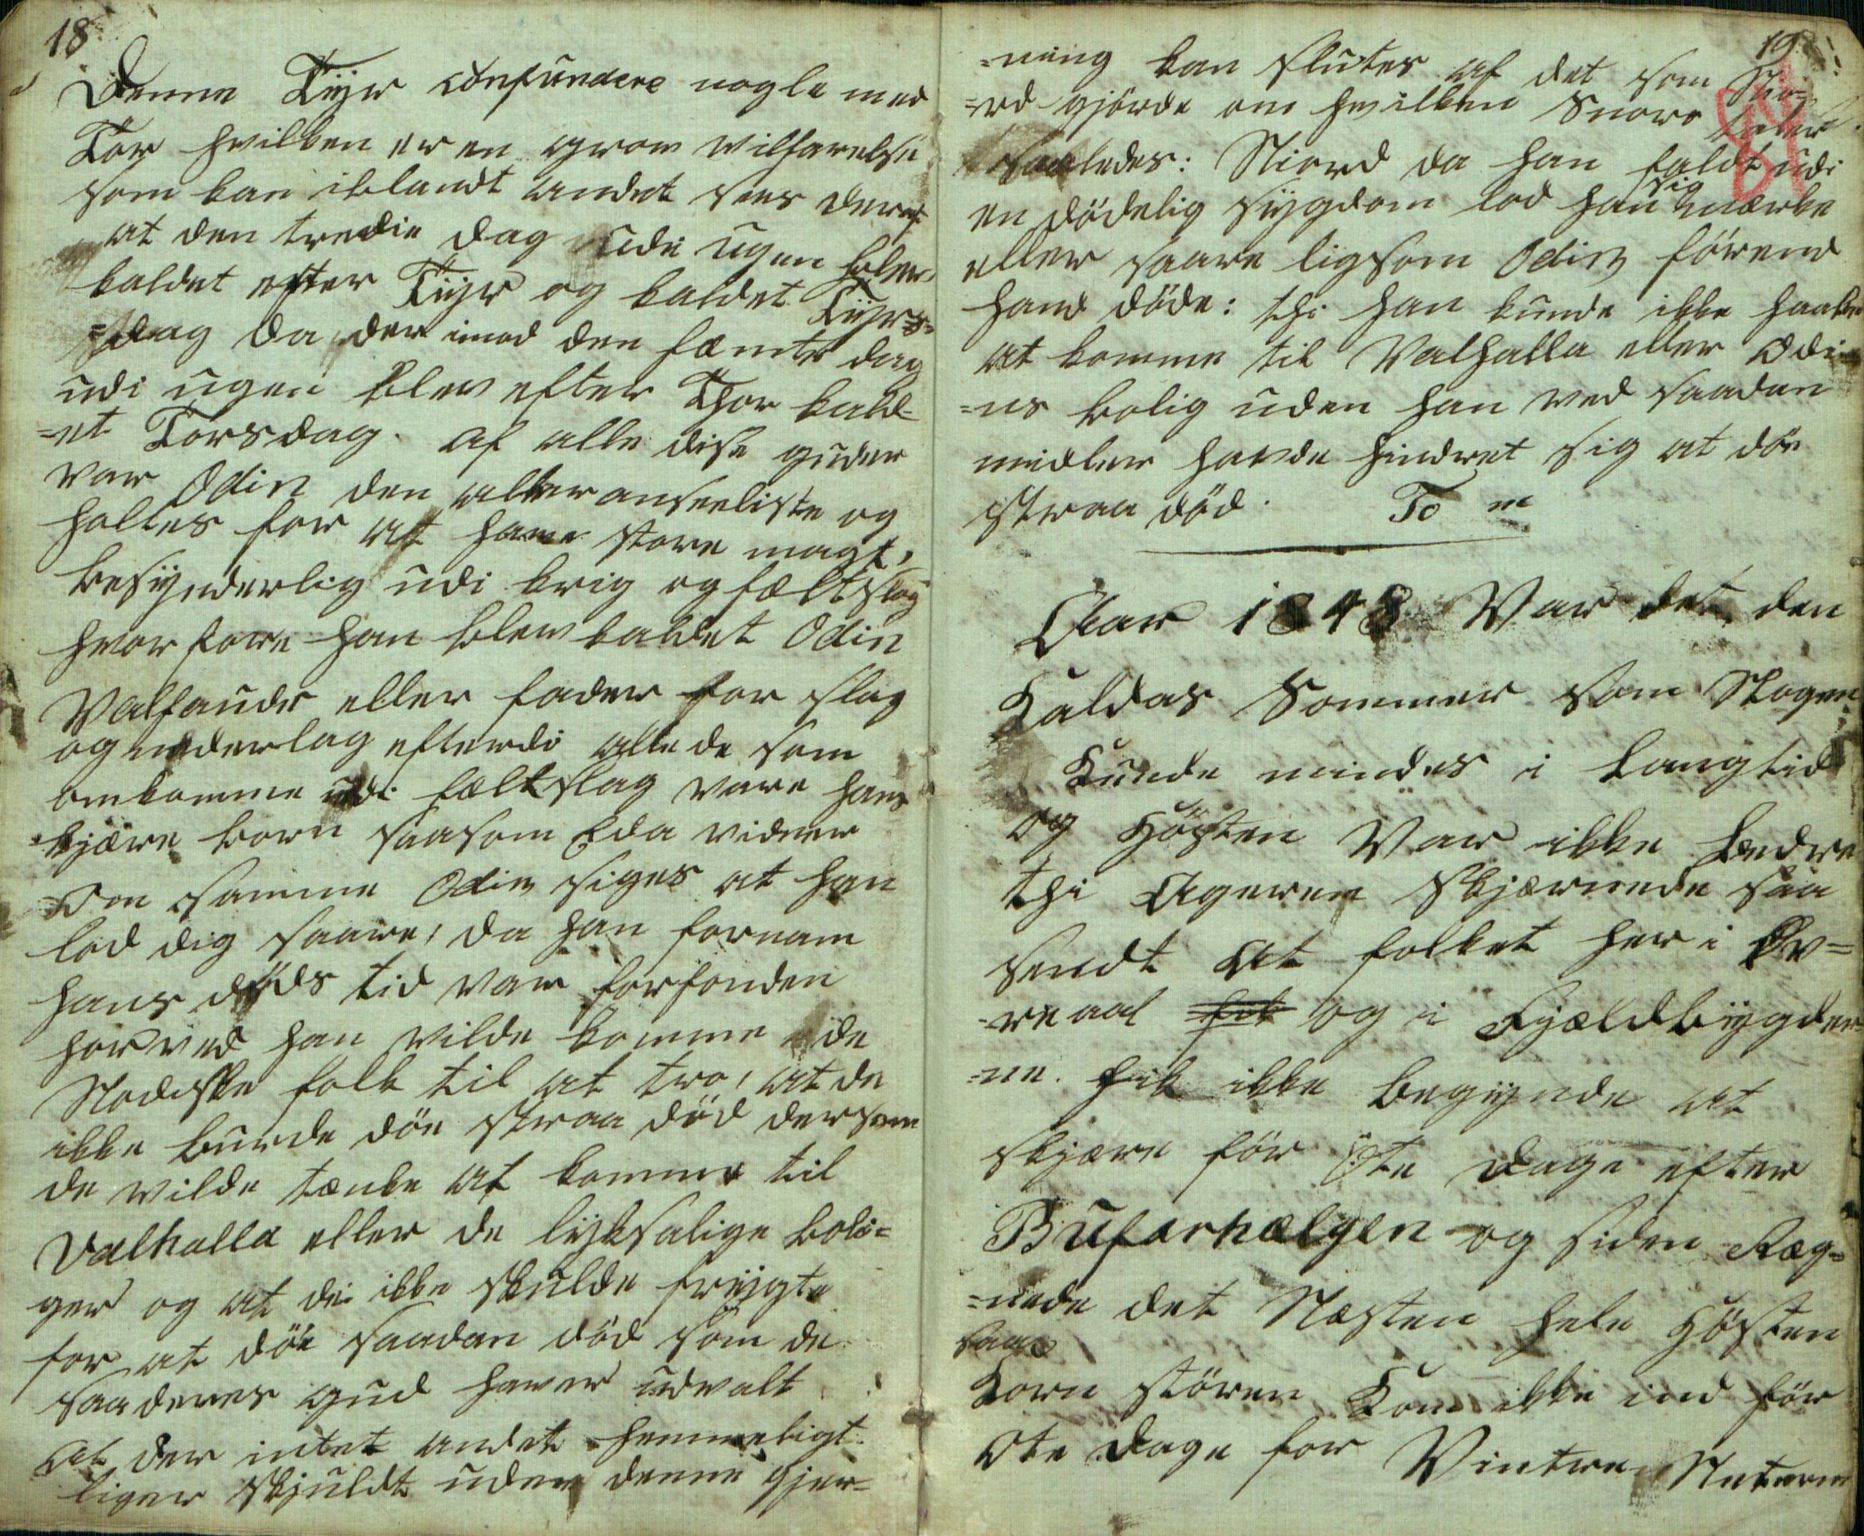 18
Denne Tyr confundere nogle med
Tor hvilken er en grov vilfarelse
som kan iblandt andet sees deraf
at den tredie dag udi ugen blev
kaldet efter Tyr og kaldet Tyrs=
=dag da der imod den femte dag
udi ugen blev efter Thor kald=
=et Torsdag. af alle dise guder
var Odin den alleranseeliste og
holtes for at have store magt,
besynderlig udi krig og fæltslag
hvorfore han blev kaldet Odin
Valfaudr eller fader for slag
og nederlag efterdi alle de som
omkomme udi fæltslag vare hans
kjære born saasom Eda vidner
Om samme Odin siges at han
lod dig saare, da han fornam
hans döds tid var forhonden
horved han vilde komme de
Nodiske folk til at tro, at de
ikke burde döe straa död dersom
de vilde tænke at komme til
Valhalla eller de lyksalige boli=
ger og at de ikke skulde frygte
for at döe saadan död som de
saa deres gud haver udvalt
at der intet andet hemmeligt
liger skjuldt uden denne gjer=
19
=ning kan slutes af det som Nio=
=rd gjörde om hvilken Snoro
saaledes: Niord da han faldt udi
en dödelig sygdom lod han sig mærke
eller saare ligsom Odin förend
hand döde: thi han kunde ikke haabe
at komme til Valhalla eller Odi=
=ns bolig uden han ved saadan
midler havde hindret sig at döe
straa död. To m
Aar 1848 Var det den
Kaldas Sommer som Nogen
Kunde mindes i Langtid
og Hösten Var ikke bedre
thi Ageren Skjærnede saa
sendt at folket her i Öv=
=reaal fik og i Fjældbygder
=ne. fik ikke begynde at
skjære för Ote Dage efter
Bufarhælgen og siden Ræg=
=nede det Næsten hele Hösten
saa
Korn stören Kom ikke ind för
Ote Dage for Vintre Neterne